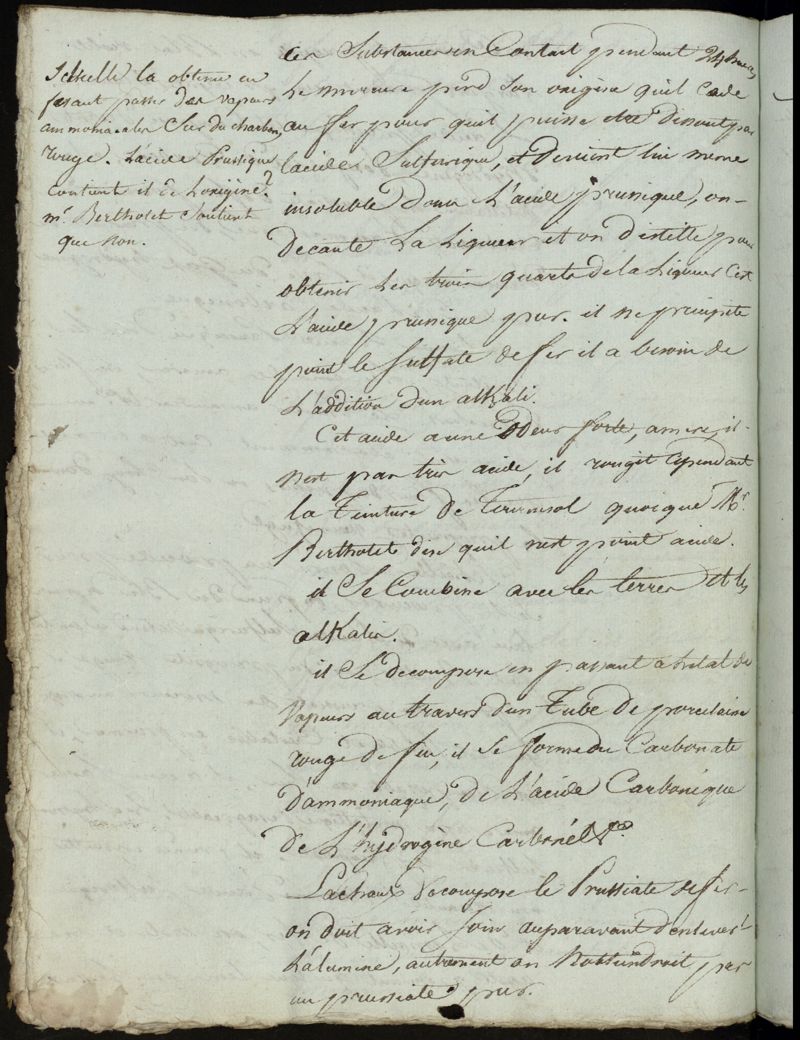 Schelle la obtenu en
fesant passer des vapeurs
ammoniacales Sur du charbon
rouge. L'acide Prussique
contient il de Loxigène?
mr. Bertholet Soutient
que non.
ces Substances en Contact pendant 24 heures
Le mercure perd Son oxigène quil Cede
au fer pour quil puisse etre dissout par
lacide Sulfurique, et devient lui meme
insoluble dans L'acide prussique, on
decante La Liqueur et on distille pour
obtenir Les trois quarts de la Liqueur C'est
L'acide prussique pur. il ne precipite
point le Sulfate de fer il a besoin de
L'addition d'un alkali.
Cet acide a une Odeur forte, amere, il
nest pas très acide, il rougit Cependant
la Teinture de Tournsol quoique Mr.
Bertholet dise quil nest point acide.
il Se Combine avec les terres et les
alKalis.
il Se decompose en passant a Letat de
Vapeurs au travers d'un Tube de porcelaine
rouge de feu, il Se forme du Carbonate
D'ammoniaque, de L'acide Carbonique
de L'hydrogène Carboné &c.
La chaux decompose le Prussiate de fer
on doit avoir Soin auparavant d'enlever
L'alumine, autrement on Nobtiendroit pas
un prussiate pur.